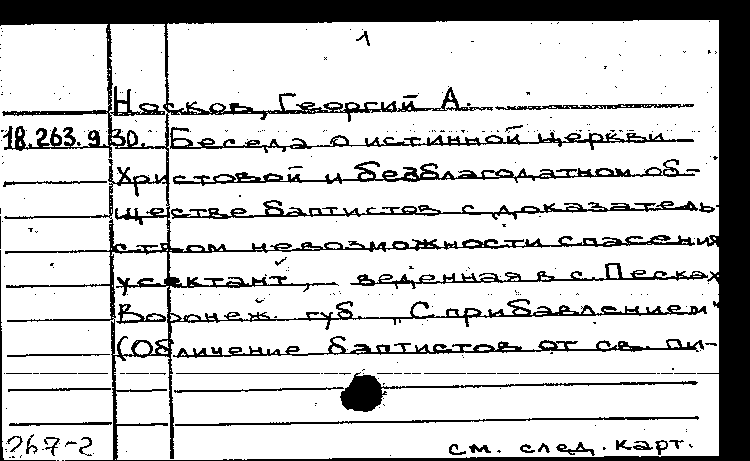 1
Носков, Георгий А.
18.263.9.30. Беседа о истинной церкви
Христовой и безблагодатном об-
ществе баптистов с доказатель-
ством невозможности спасения
усектант, - веденная в с. Песках
Воронеж. губ. „С прибавлением"
(Обличение баптистов от св. пи-
267-2
см. след. карт.